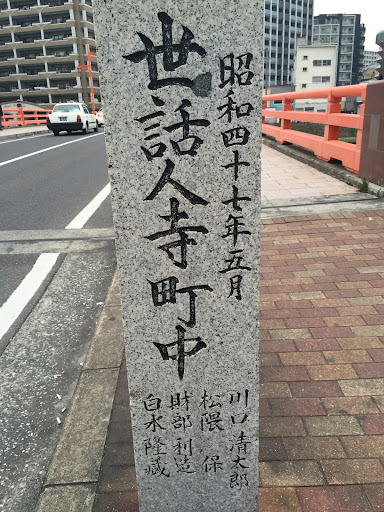 昭和四十七年五月
世話人寺町中
川口清太郎
松隈保
財部利造
白水隆藏